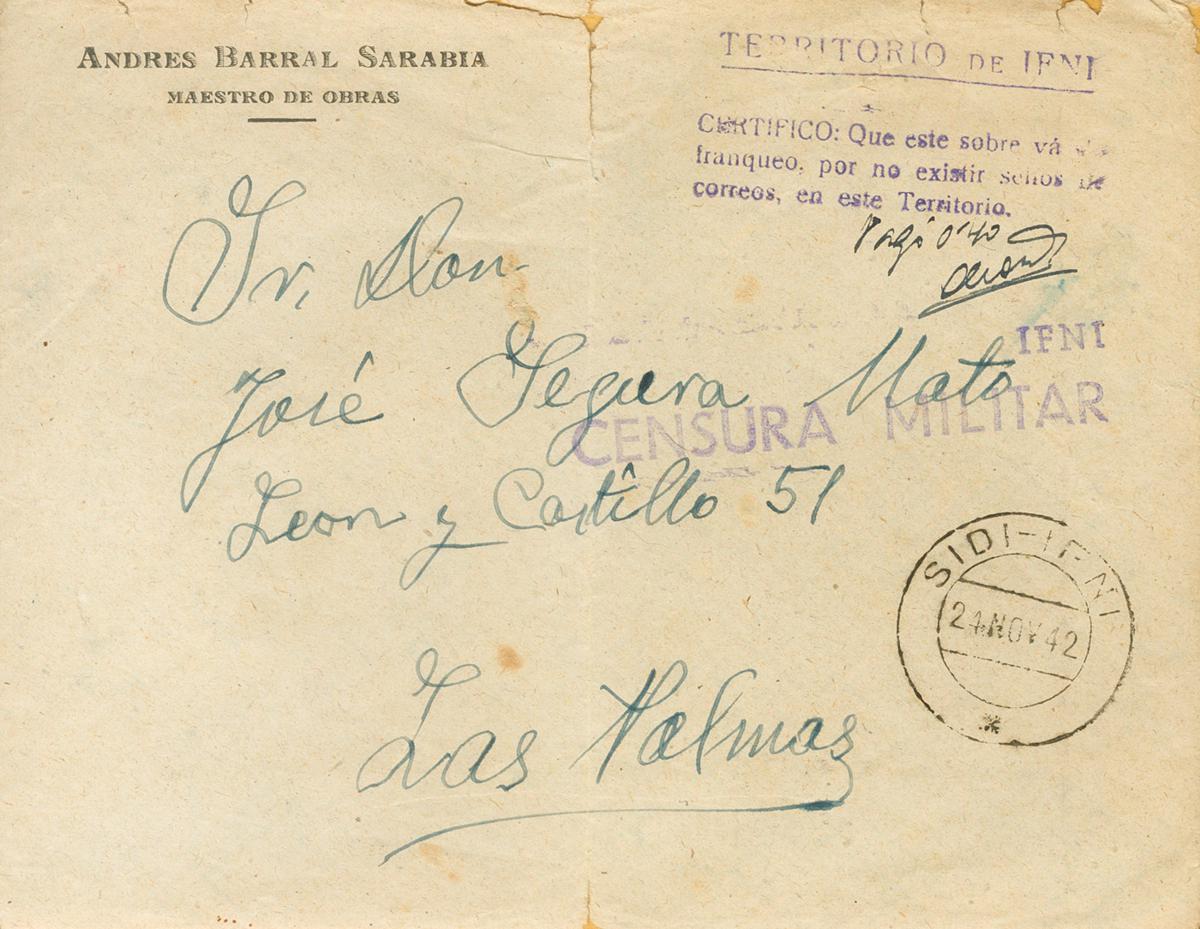 ANDRES BARRAL SARABIA
MAESTRO DE OBRAS
TERRITORIO DE IFNI
CERTIFICO: Que este sobre vá
franqueo, por no existir sellos de
correos, en este Territorio.
Pagó 0'40
Sr. Don
José Segura Mato
IFNI
CENSURA MILITAR
Leon y Castillo 51
SIDI-IFNI
24 NOV 42
Las Palmas